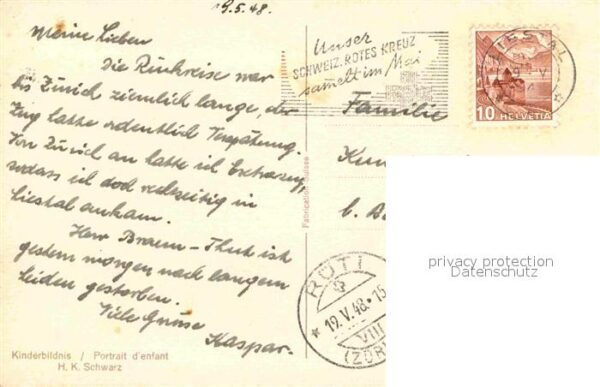 19.5.48.
Meine Lieben
Die Rückreise war
bis Zürich ziemlich lange, der
Zug hatte ordentlich Verspätung.
Von Zürich an hatte ich Extrazug,
sodass ich doch rechtzeitig in
Liestal ankam.
Herr Braun-Thut ist
gestern morgen nach langem
Leiden gestorben.
Viele Grüsse
Kaspar.
Kinderbildnis / Portrait d'enfant
H. K. Schwarz
Fabrication Suisse
Unser
SCHWEIZ. ROTES KREUZ
sammelt im Mai
LIESTAL
10 HELVETIA
Familie
b.
RÜTI
19.V.48.-15
VIII
(ZÜR
privacy protection
Datenschutz